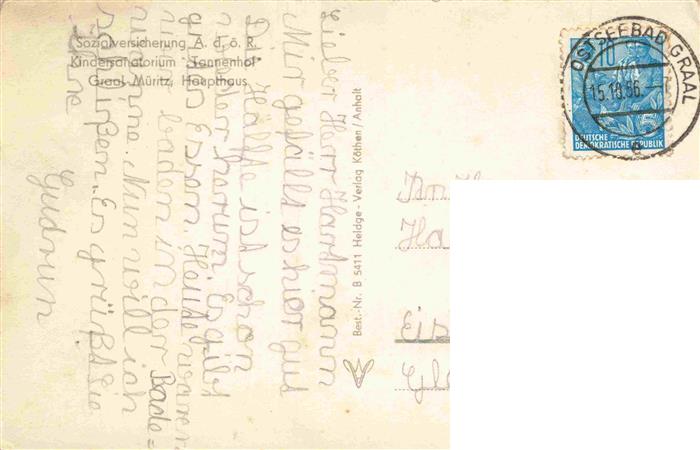 Sozialversicherung A. d. ö. R.
Kindersanatorium Tannenhof
Graal Müritz, Haupthaus
Lieber Herr Hartmann
Mir gefällt es hier gut
Die Hälfte ist schon
wieder herum. Es gibt
gutes Essen. Heute waren
wir baden in der Bade=
wanne. Nun will ich
schließen. Es grüßt Sie
Ihre
Gudrun
Best.-Nr. B 5411 Heldge-Verlag Köthen / Anhalt
OSTSEEBAD GRAAL
15.10.56.
10
5
DEUTSCHE
DEMOKRATISCHE REPUBLIK
An H
Ha
Eis